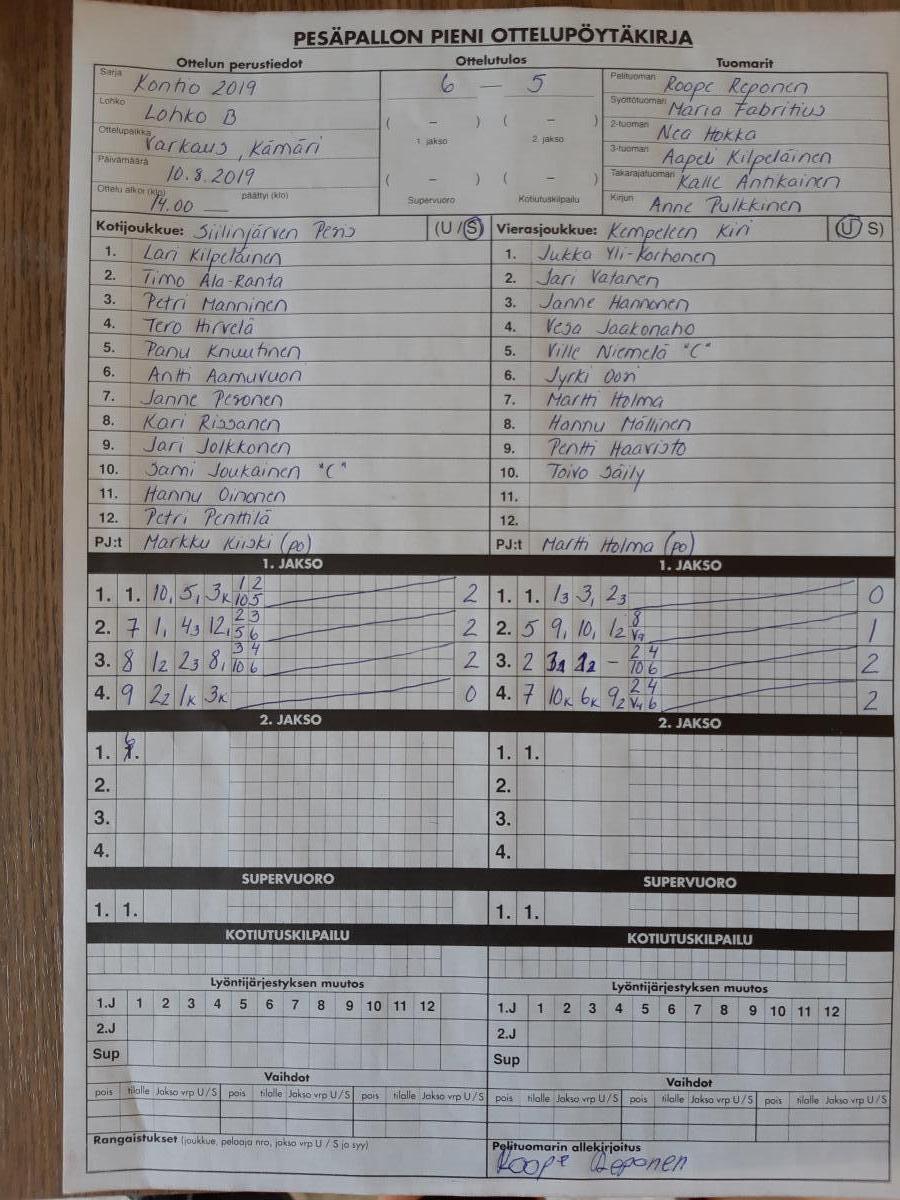 PESÄPALLON PIENI OTTELUPÖYTÄKIRJA
Ottelun perustiedot
Sarja Kontio 2019
Lohko Lohko B
Ottelupaikka Varkaus, Kämäri
Päivämäärä 10.8.2019
Ottelu alkoi (klo) 14.00 — päättyi (klo)
Ottelutulos
6 — 5
( – ) ( – )
1. jakso 2. jakso
( – ) ( – )
Supervuoro Kotiutuskilpailu
Tuomarit
Pelituomari Roope Reponen
Syöttötuomari Maria Fabritius
2-tuomari Nea Hokka
3-tuomari Aapeli Kilpeläinen
Takarajatuomari Kalle Antikainen
Kirjuri Anne Pulkkinen
Kotijoukkue: Siilinjärven Pesis (U / S)
1. Lari Kilpeläinen
2. Timo Ala-Ranta
3. Petri Manninen
4. Tero Hirvelä
5. Panu Knuutinen
6. Antti Aamuvuori
7. Janne Pesonen
8. Kari Rissanen
9. Jari Jolkkonen
10. Sami Joukainen "C"
11. Hannu Oinonen
12. Petri Penttilä
PJ:t Markku Kiiski (po)
Vierasjoukkue: Kempeleen Kiri (U S)
1. Jukka Yli-Korhonen
2. Jari Vatanen
3. Janne Hannonen
4. Vesa Jaakonaho
5. Ville Niemelä "C"
6. Jyrki Oori
7. Martti Holma
8. Hannu Mällinen
9. Pentti Haavisto
10. Toivo Säily
11.
12.
PJ:t Martti Holma (po)
1. JAKSO
1. 1. 10, 5, 3K 1 2 10 5 2
2. 7 1, 43 12, 2 3 5 6 2
3. 8 12 23 8, 3 4 10 6 2
4. 9 22 1K 3K 0
1. JAKSO
1. 1. 13 3, 23 0
2. 5 9, 10, 12 8 V9 1
3. 2 - 2 4 10 6 2
4. 7 10K 6K 92 2 4 V4 6 2
2. JAKSO
1. 6
2.
3.
4.
2. JAKSO
1. 1.
2.
3.
4.
SUPERVUORO
1. 1.
SUPERVUORO
1. 1.
KOTIUTUSKILPAILU
KOTIUTUSKILPAILU
Lyöntijärjestyksen muutos
1.J 1 2 3 4 5 6 7 8 9 10 11 12
2.J
Sup
Lyöntijärjestyksen muutos
1.J 1 2 3 4 5 6 7 8 9 10 11 12
2.J
Sup
Vaihdot
pois tilalle Jakso vrp U / S pois tilalle Jakso vrp U / S pois tilalle Jakso vrp U / S
Vaihdot
pois tilalle Jakso vrp U / S pois tilalle Jakso vrp U / S pois tilalle Jakso vrp U / S
Rangaistukset (joukkue, pelaaja nro, jakso vrp U / S ja syy)
Pelituomarin allekirjoitus
Roope Reponen